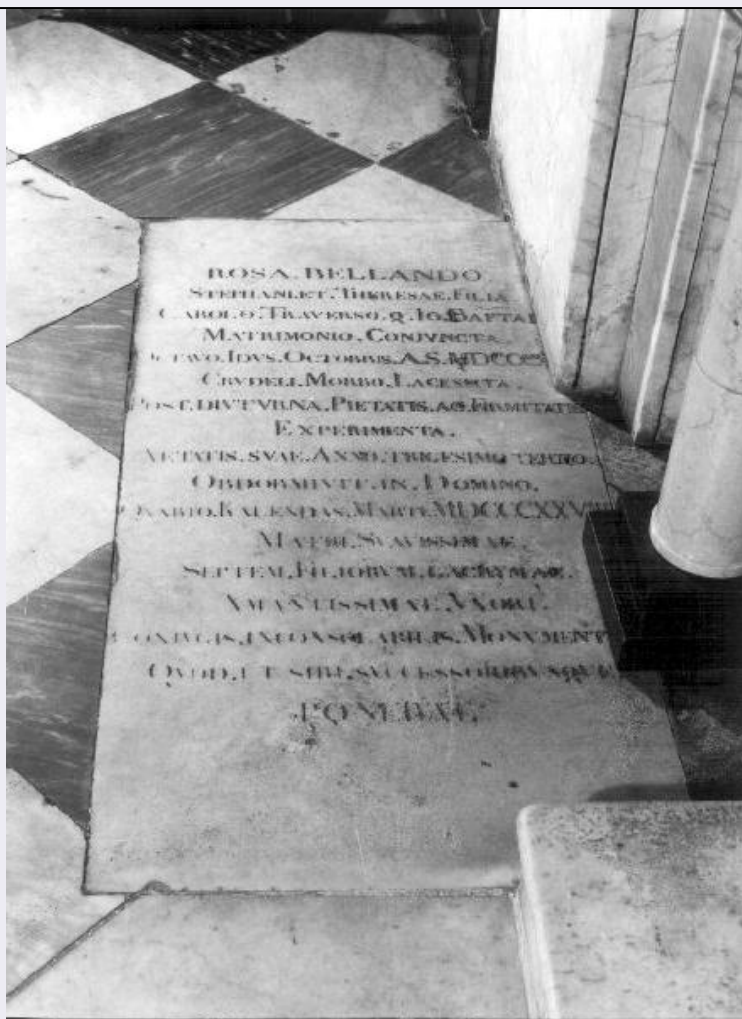 ROSA.BELLANDO.
STEPHANI.ET.THERESAE.FILIA
CAROLO.TRAVERSO.Q.IO.BAPTAE
MATRIMONIO.CONJVNCTA.
IDVS.OCTOBRIS.A.S.
CRVDELI.MORBO.LACESSITA.
POST.DIVTVRNA.PIETATIS.AC.FIRMITATIS
EXPERIMENTA.
AETATIS.SVAE.ANNO.TRIGESIMO.TERTIO.
OBDORMIVIT.IN.DOMINO.
KALENDAS.MARTII.
MATRI.SVAVISSIMAE.
SEPTEM.FILIORVM.LACRYMAE.
AMANTISSIMAE.VXORI.
CONJVGIS.INCONSOLABILIS.
QVOD.ET.SIBI.SVCCESSORIBVSQVE
PONEBAT.